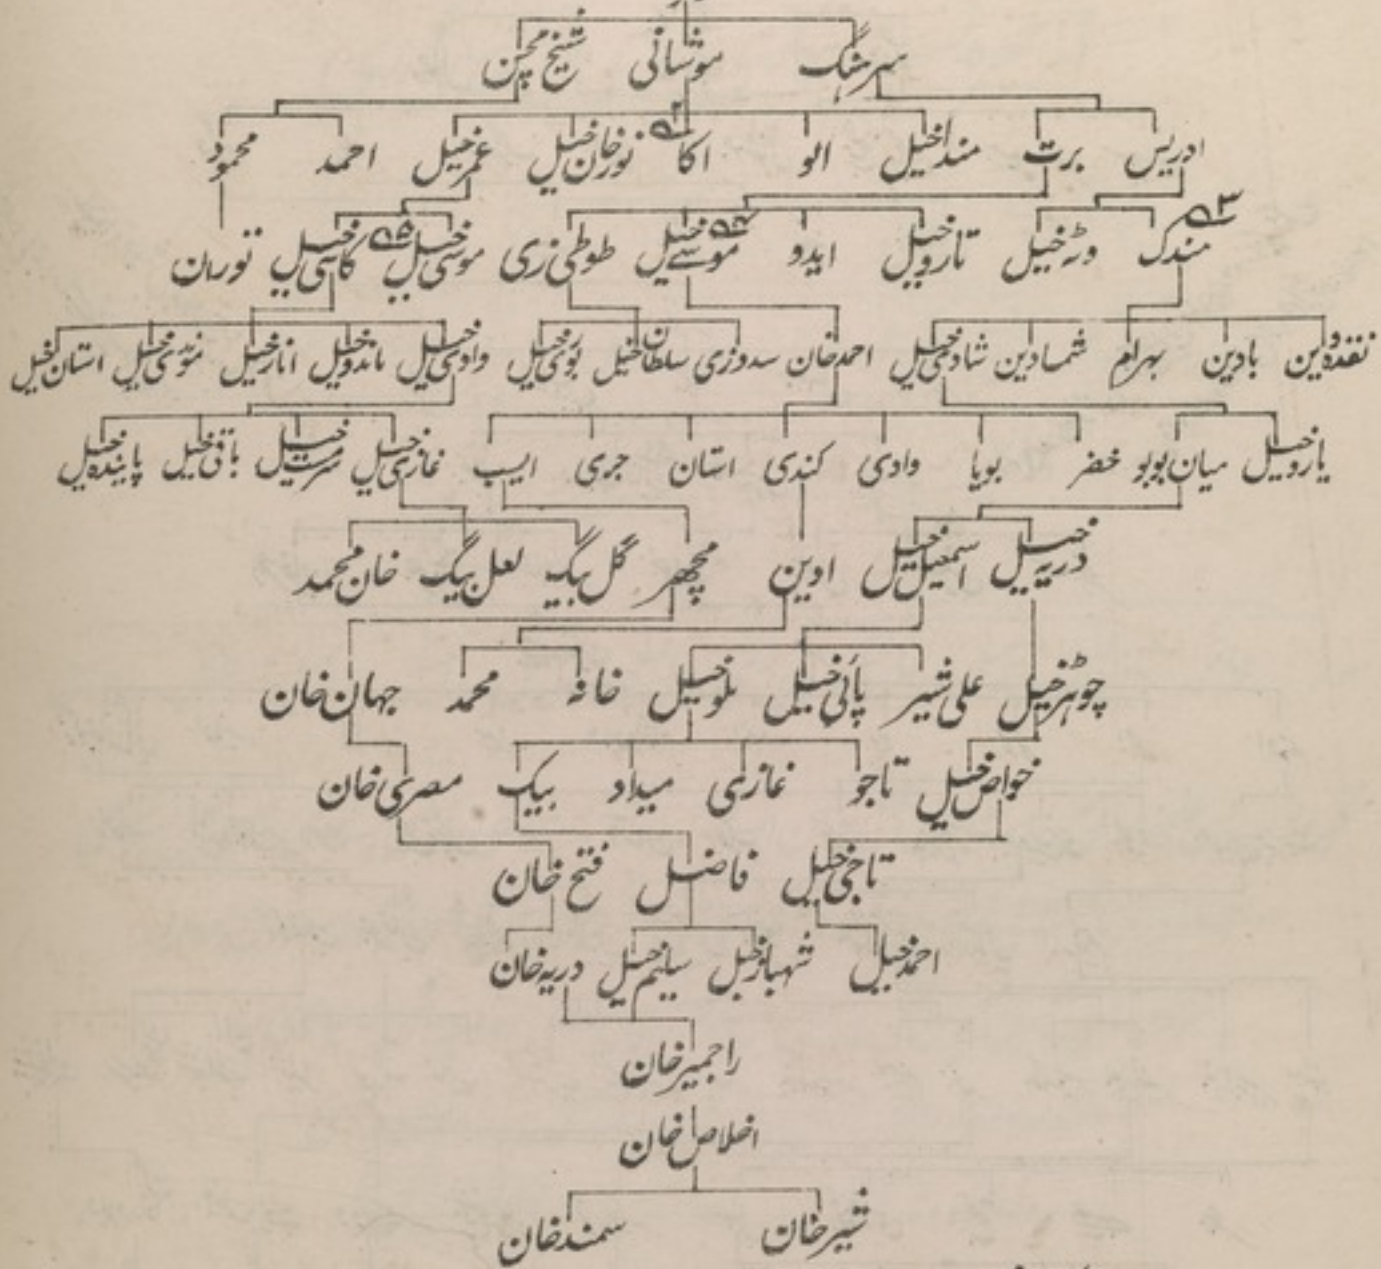 سرہنگ موشانی شیخ مچن
ادریس برت منداخیل الو اکا ۹۲ نورخان خیل عمرخیل احمد محمود
۹۳ مندک وڑخیل تاروخیل ایدو ۹۴ موسےٰ خیل طوطی زی موسیٰ خیل ۹۵ کاسی خیل توران
بادین بہرام شمادین شادی خیل احمدخان سدوزی سلطان خیل بوی خیل وادی خیل ماندوخیل انارخیل موندی خیل استان خیل
یاروخیل میان بوبو خضر بویا وادی کندی استان جری ایسب غازی خیل باقی خیل پایندہ خیل
دریہ خیل اسمعیل خیل ادین مچھر گل بیگ لعل بیگ خان محمد
چوہڑخیل علی شیر پائی خیل بلوخیل خانہ محمد جہان خان
خواص خیل تاجو غازی میداد بیک مصری خان
تاجی خیل فاضل فتح خان
احمدخیل شہبازخیل سالیم خیل دریہ خان
راجمیرخان
اخلاص خان
شیرخان سمندخان